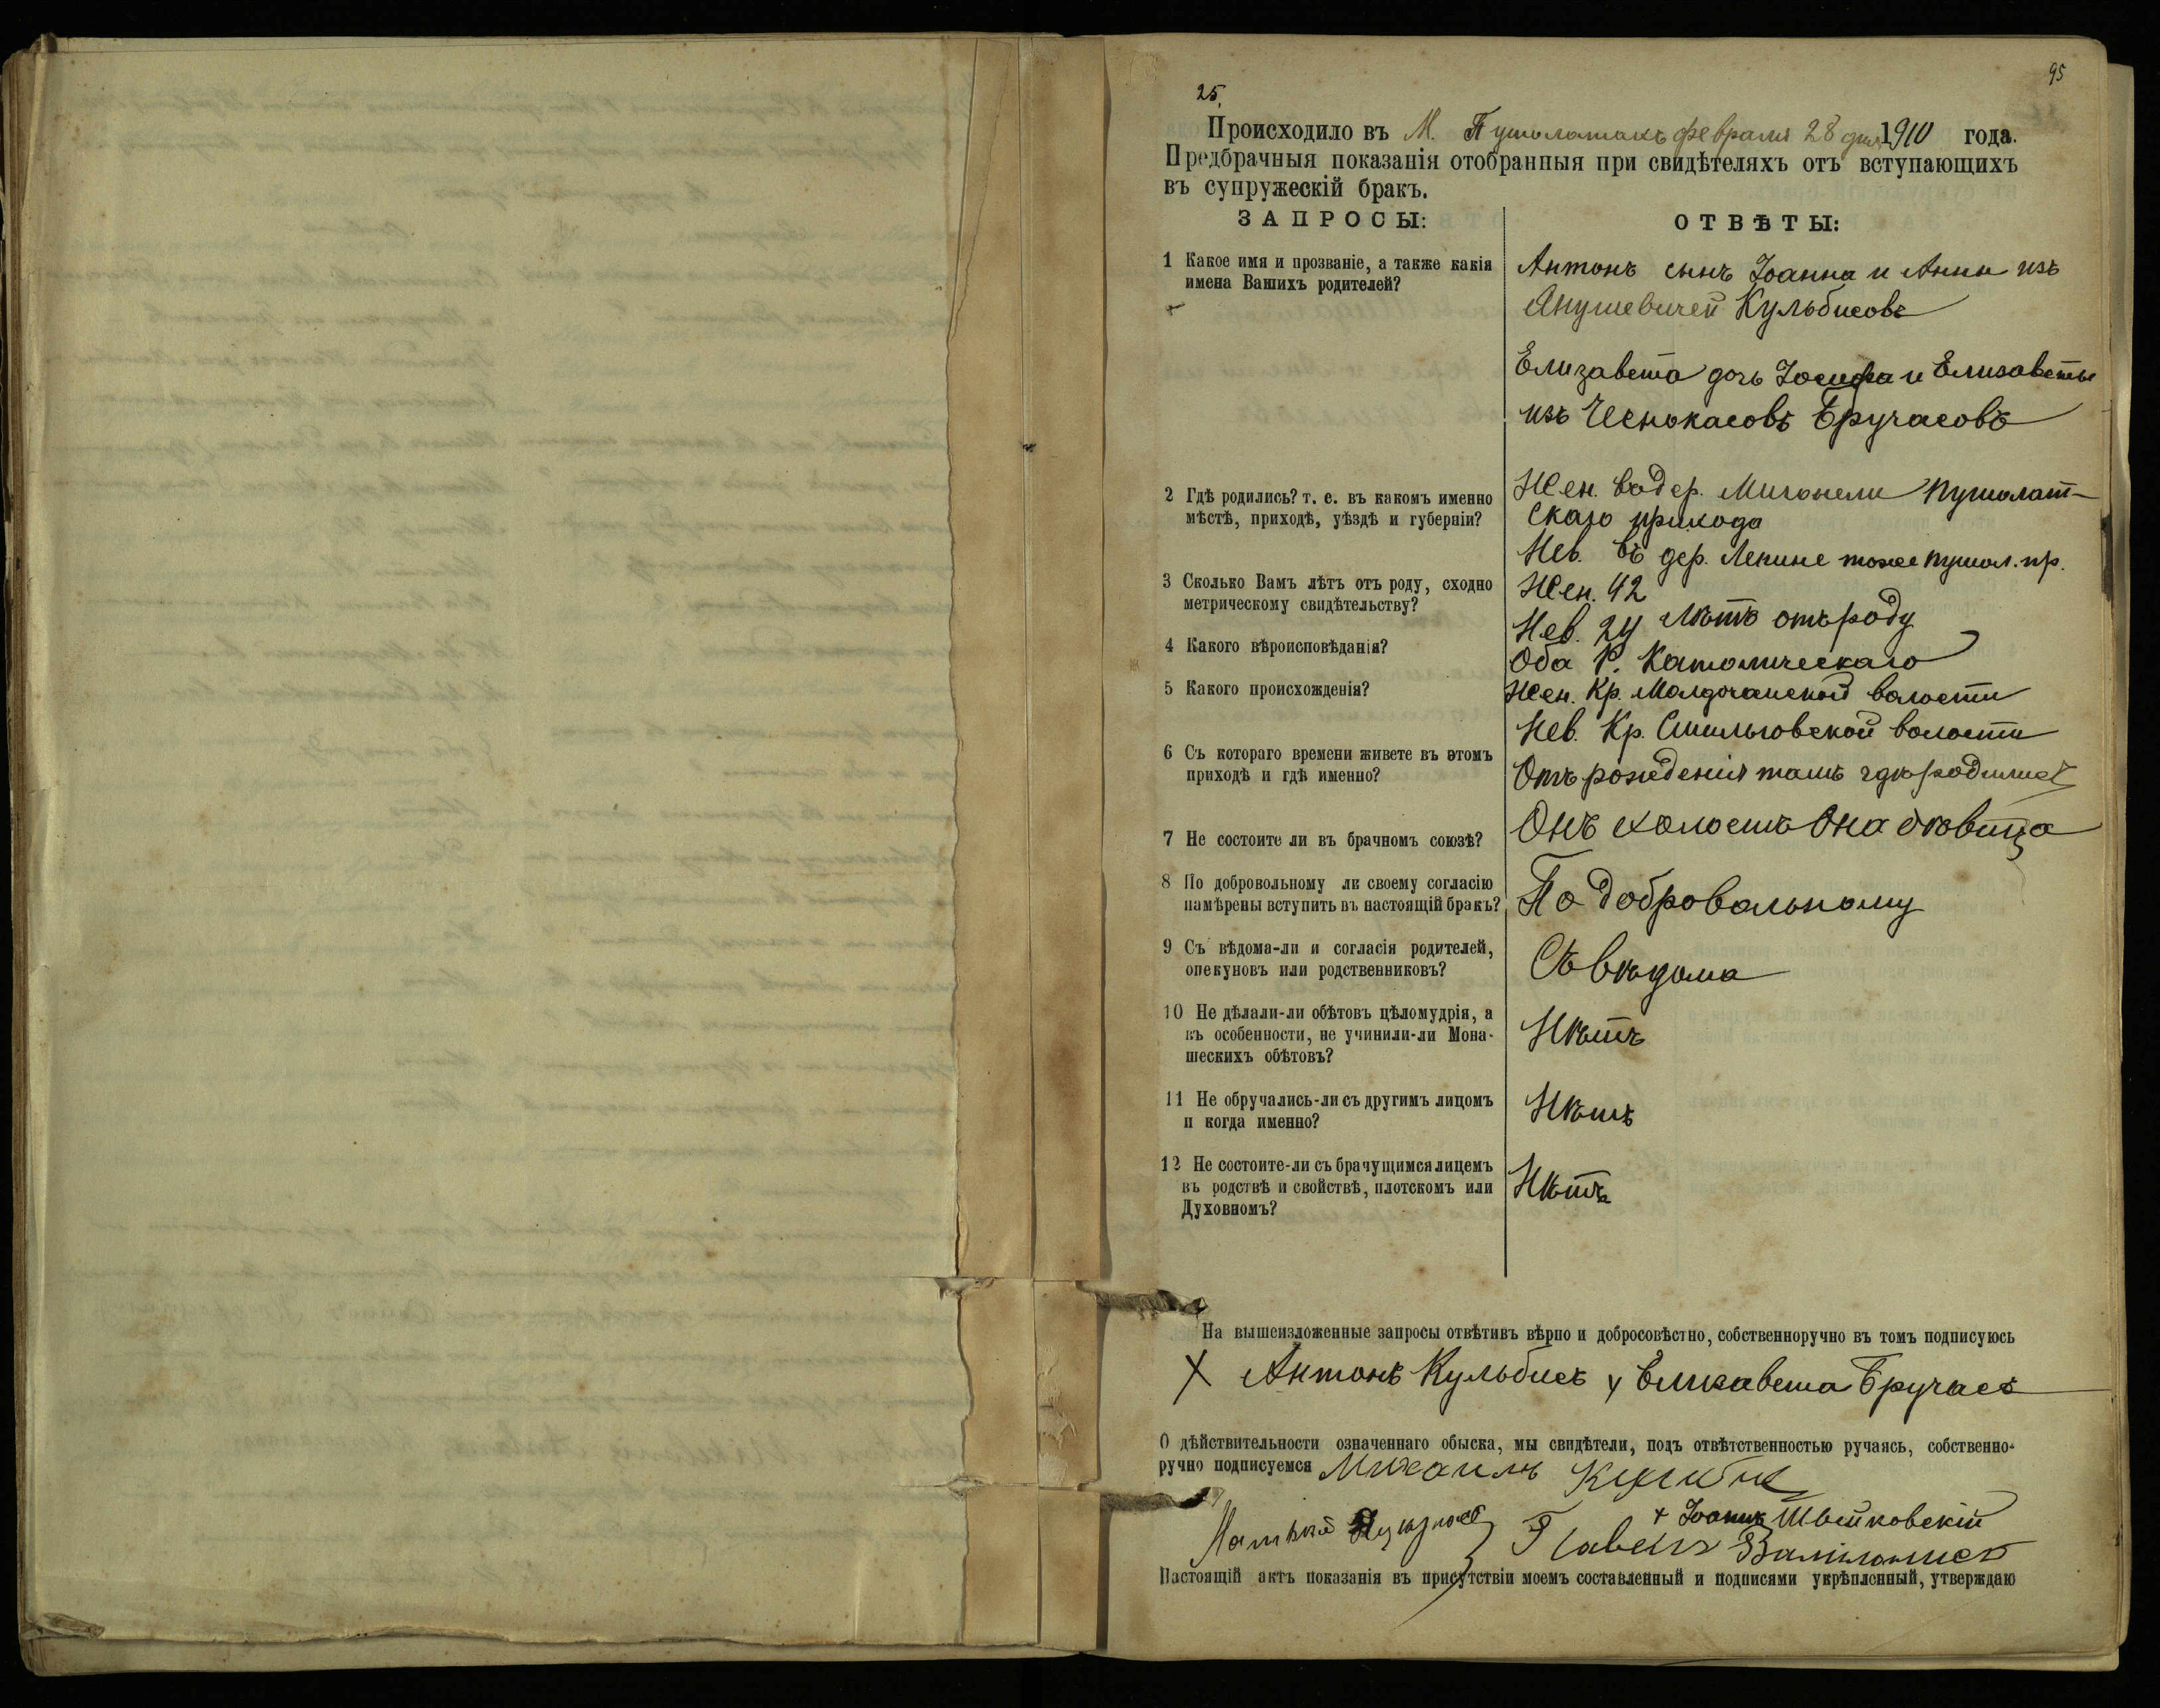 95
25.
Происходило въ М. Пушолатахъ февраля 28 дня 1910 года.
Предбрачныя показанія отобранныя при свидѣтеляхъ отъ вступающихъ
въ супружескій бракъ.
ЗАПРОСЫ:
ОТВѢТЫ:
1 Какое имя и прозваніе, а также какія
имена Вашихъ родителей?
Антонъ сынъ Іоанна и Анны изъ
Янушевичей Кульбисовъ
Елизавета дочь Іосифа и Елизаветы
изъ Чеснокасовъ Бручасовъ
2 Гдѣ родились? т. е. въ какомъ именно
мѣстѣ, приходѣ, уѣздѣ и губерніи?
Жен. въ дер. Мигонели Пушолат-
скаго прихода
Нев. въ дер. Лепине тоже пушол. пр.
3 Сколько Вамъ лѣтъ отъ роду, сходно
метрическому свидѣтельству?
Жен. 42
Нев. 24 лѣтъ отъ роду
4 Какого вѣроисповѣданія?
Оба Р. Католическаго
5 Какого происхожденія?
Жен. Кр. волости
Нев. Кр. Смильговской волости
6 Съ котораго времени живете въ этомъ
приходѣ и гдѣ именно?
Отъ рожденія тамъ гдѣ родились
7 Не состоите ли въ брачномъ союзѣ?
Онъ холостъ Она дѣвица
8 По добровольному ли своему согласію
намѣрены вступить въ настоящій бракъ?
По добровольному
9 Съ вѣдома-ли и согласія родителей,
опекуновъ или родственниковъ?
Съ вѣдома
10 Не дѣлали-ли обѣтовъ цѣломудрія, а
въ особенности, не учинили-ли Мона-
шескихъ обѣтовъ?
Нѣтъ
11 Не обручались-ли съ другимъ лицомъ
и когда именно?
Нѣтъ
12 Не состоите-ли съ брачущимся лицемъ
въ родствѣ и свойствѣ, плотскомъ или
Духовномъ?
Нѣтъ
На вышеизложенные запросы отвѣтивъ вѣрно и добросовѣстно, собственноручно въ томъ подписуюсь
X Антонъ Кульбисъ x Елизавета Бручасъ
О дѣйствительности означеннаго обыска, мы свидѣтели, подъ отвѣтственностью ручаясь, собственно-
ручно подписуемся Михаилъ
+ Іоаннъ Швейковскій
Павелъ
Настоящій актъ показанія въ присутствіи моемъ составленный и подписями укрѣпленный, утверждаю